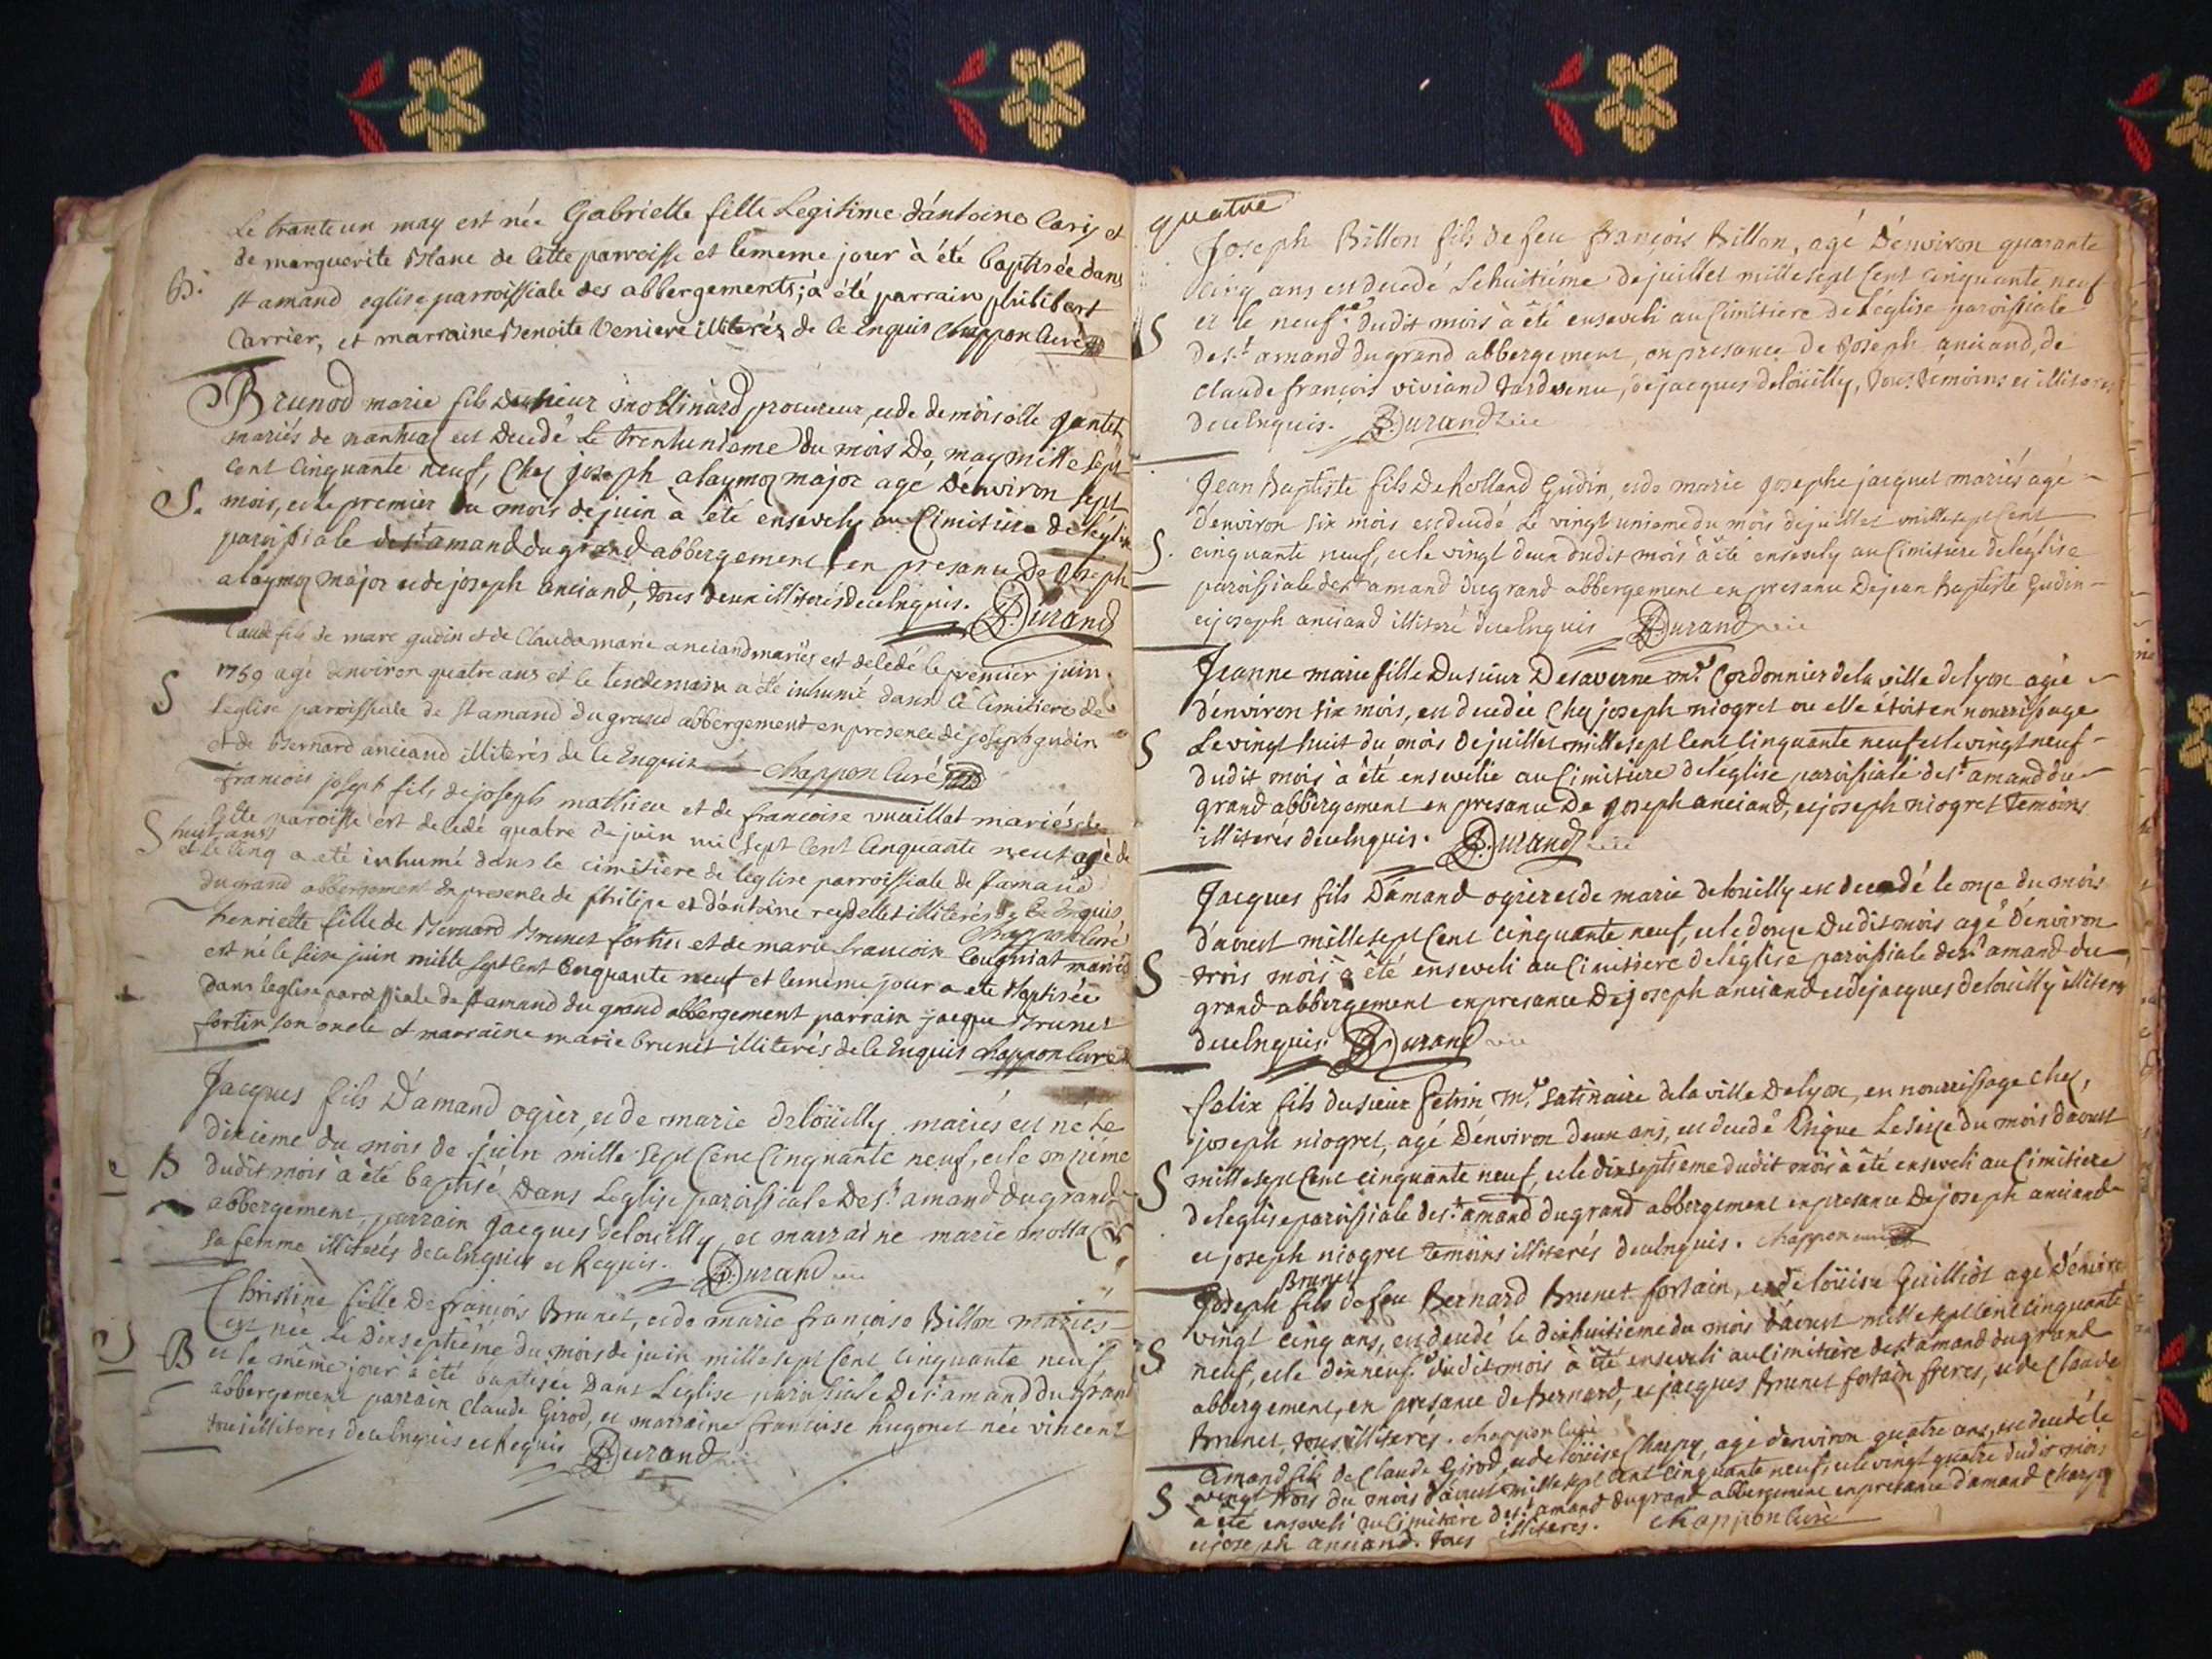 Le trante un may est née Gabrielle fille Legitime d'antoine Carij et
de marguerite Blanc de Cette parroisse et lememe jour à été baptisée dans
B.
st amand eglise parroissiale des abbergements; à été parrain philibert
Carrier, et marraine Benoite Veniere illiterés de Ce Enquis Chappon Curé
Brunod marie fils du sieur mollinard procureur, et de demoiselle gantet
mariés de nantua est decedé Le trentunieme du mois de may mille sept
cent cinquante neuf, Chez joseph alaymoz major agé d'environ sept
S.
mois, et le premier du mois de juin à été ensevely au Cimitiere de léglise
paroissiale de st amand du grand abbergement en presance De joseph
alaymoz major et de joseph anciand, tous deux illiterés de ce enquis. Durand
Claude fils de marc gudin et de Claudamarie anciand mariés est decedé le premier juin
S
1759 agé denviron quatre ans et le lendemain a été inhumé dans le Cimitiere de
Leglise parroissiale de st amand du grand abbergement en presence de joseph gudin
et de Bernard anciand illiterés de Ce Enquis Chappon Curé
francois joseph fils de joseph mathieu et de francoise vuaillat mariés de
Cette paroisse est decedé quatre de juin mil sept Cent Cinquante neuf agé de
S
huit ans
et le Cinq a été inhumé dans le cimitiere de leglise parroissiale de st amand
du grand abbergement en presence de philipe et d'antoine reydellet illiterés de Ce Enquis,
Chappon Curé
henriette fille de Bernard Brunet fortin et de marie francoise Cougniat mariés
est né le seize juin mille sept Cent Cinquante neuf et le même jour a été Baptisée
Dans leglise paroissiale de st amand du grand abbergement parrain jacque Brunet
fortin son oncle et marraine marie brunet illiterés de Ce Enquis Chappon Curé
Jacques fils D'amand ogier, et de marie deloüilly mariés est né Le
dixieme du mois de juin mille Sept Cent Cinquante neuf, et le onzieme
B
dudit mois à été baptisé Dans Leglise paroissiale De st. amand du grand
abbergement, parrain Jacques delouilly, et marraine marie molla
sa femme illiterés de ce Enquis et Requis. Durand vic
Christine fille De françois Brunet, et de marie françoise Billon mariés
est née Le Dixseptiéme du mois de juin mille sept Cent Cinquante neuf
B
et le même jour à été baptisée Dans L'église paroissiale De st amand du grand
abbergement parrain Claude Girod, et marraine francoise hugonet née vincent
tous illiterés de ce Enquis et Requis Durand vic
quatre
Joseph Billon fils de feu françois Billon, agé D'environ quarante
cinq ans est decedé Le huitiéme de juillet mille sept Cent Cinquante neuf
S
et le neufe dudit mois à été enseveli au Cimitiere de l'église paroissiale
de st amand du grand abbergement, en presance de Joseph anciand, de
Claude françois viviand tardvenu, de jacques deloüilly, tous témoins et illiterés
de ce Enquis. Durand vic
Jean Baptiste fils De Rolland Gudin, et de marie Josephe jacquet mariés agé
d'environ six mois est decedé Le vingt unieme du mois de juillet mille sept Cent
S.
cinquante neuf, et le vingt deux dudit mois à été ensevely au Cimitiere de l'église
paroissiale de st amand du grand abbergement en presance De jean Baptiste Gudin
et joseph anciand illiteré de ce Enquis Durand vic
Jeanne marie fille Du sieur Desaverne mre Cordonnier de la ville de lyon agée
d'environ six mois, est decedée Chez joseph niogret ou elle étoit en nourrissage
S
Le vingt huit du mois de juillet mille sept Cent Cinquante neuf et le vingt neuf
dudit mois à été ensevelie au Cimitiere de l'église paroissiale de st amand du
grand abbergement en presance De Joseph anciand, et joseph niogret temoins
illiterés de ce Enquis. Durand vic
Jacques fils D'amand ogier et de marie delouilly est decedé le onze du mois
d'aoust mille sept Cent Cinquante neuf, et le douze Dudit mois agé D'environ
S
trois mois à été enseveli au Cimitiere de l'église paroissiale de st amand du
grand abbergement en presance De joseph anciand et de jacques delouilly illiterés
de ce Enquis. Durand vic
felix fils du sieur fetrin, mre Satinaire de la ville De lyon, en nourrissage chez,
joseph niogret, agé D'environ deux ans, est decedé Le seize du mois d'aoust
S
mille sept Cent cinquante neuf, et le dixseptieme dudit mois à été enseveli au Cimitiere
de l'eglise paroissiale de st. amand du grand abbergement en presance De joseph anciand
et joseph niogret temoins illiterés de ce Enquis. Chappon curé
Brunet
Joseph fils de feu Bernard Brunet fortain, et de loüise Guilliot agé d'environ
vingt cinq ans, est decedé le dixhuitieme du mois d'aoust mille sept Cent cinquante
S
neuf, et le dixneufe dudit mois à été enseveli au Cimitiére de st amand du grand
abbergement, en presance de Bernard, et jacques Brunet fortain freres, et de Claude
Brunet, tous illiterés. Chappon Curé
Amand fils de Claude Girod, et de loüise Charpy, agé denviron quatre ans, est decedé le
vingt trois du mois d'aoust mille sept Cent Cinquante neuf, et le vingt quatre dudit mois
S
a été enseveli au Cimitiere de st. amand du grand abbergement en presance d'amand Charpy
et joseph anciand. tous illiterés. Chappon Curé